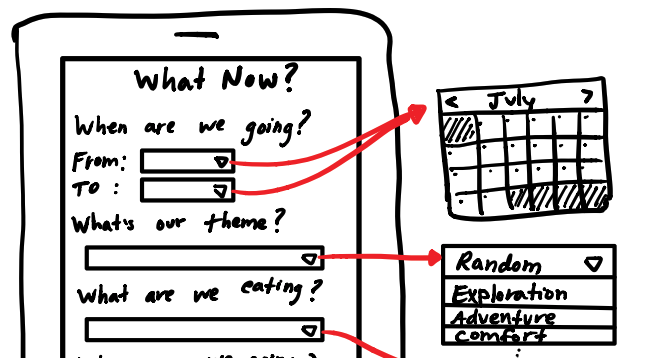 What Now?
When are we going?
From:
To :
What's our theme?
What are we eating?
< July >
Random
Exploration
Adventure
Comfort